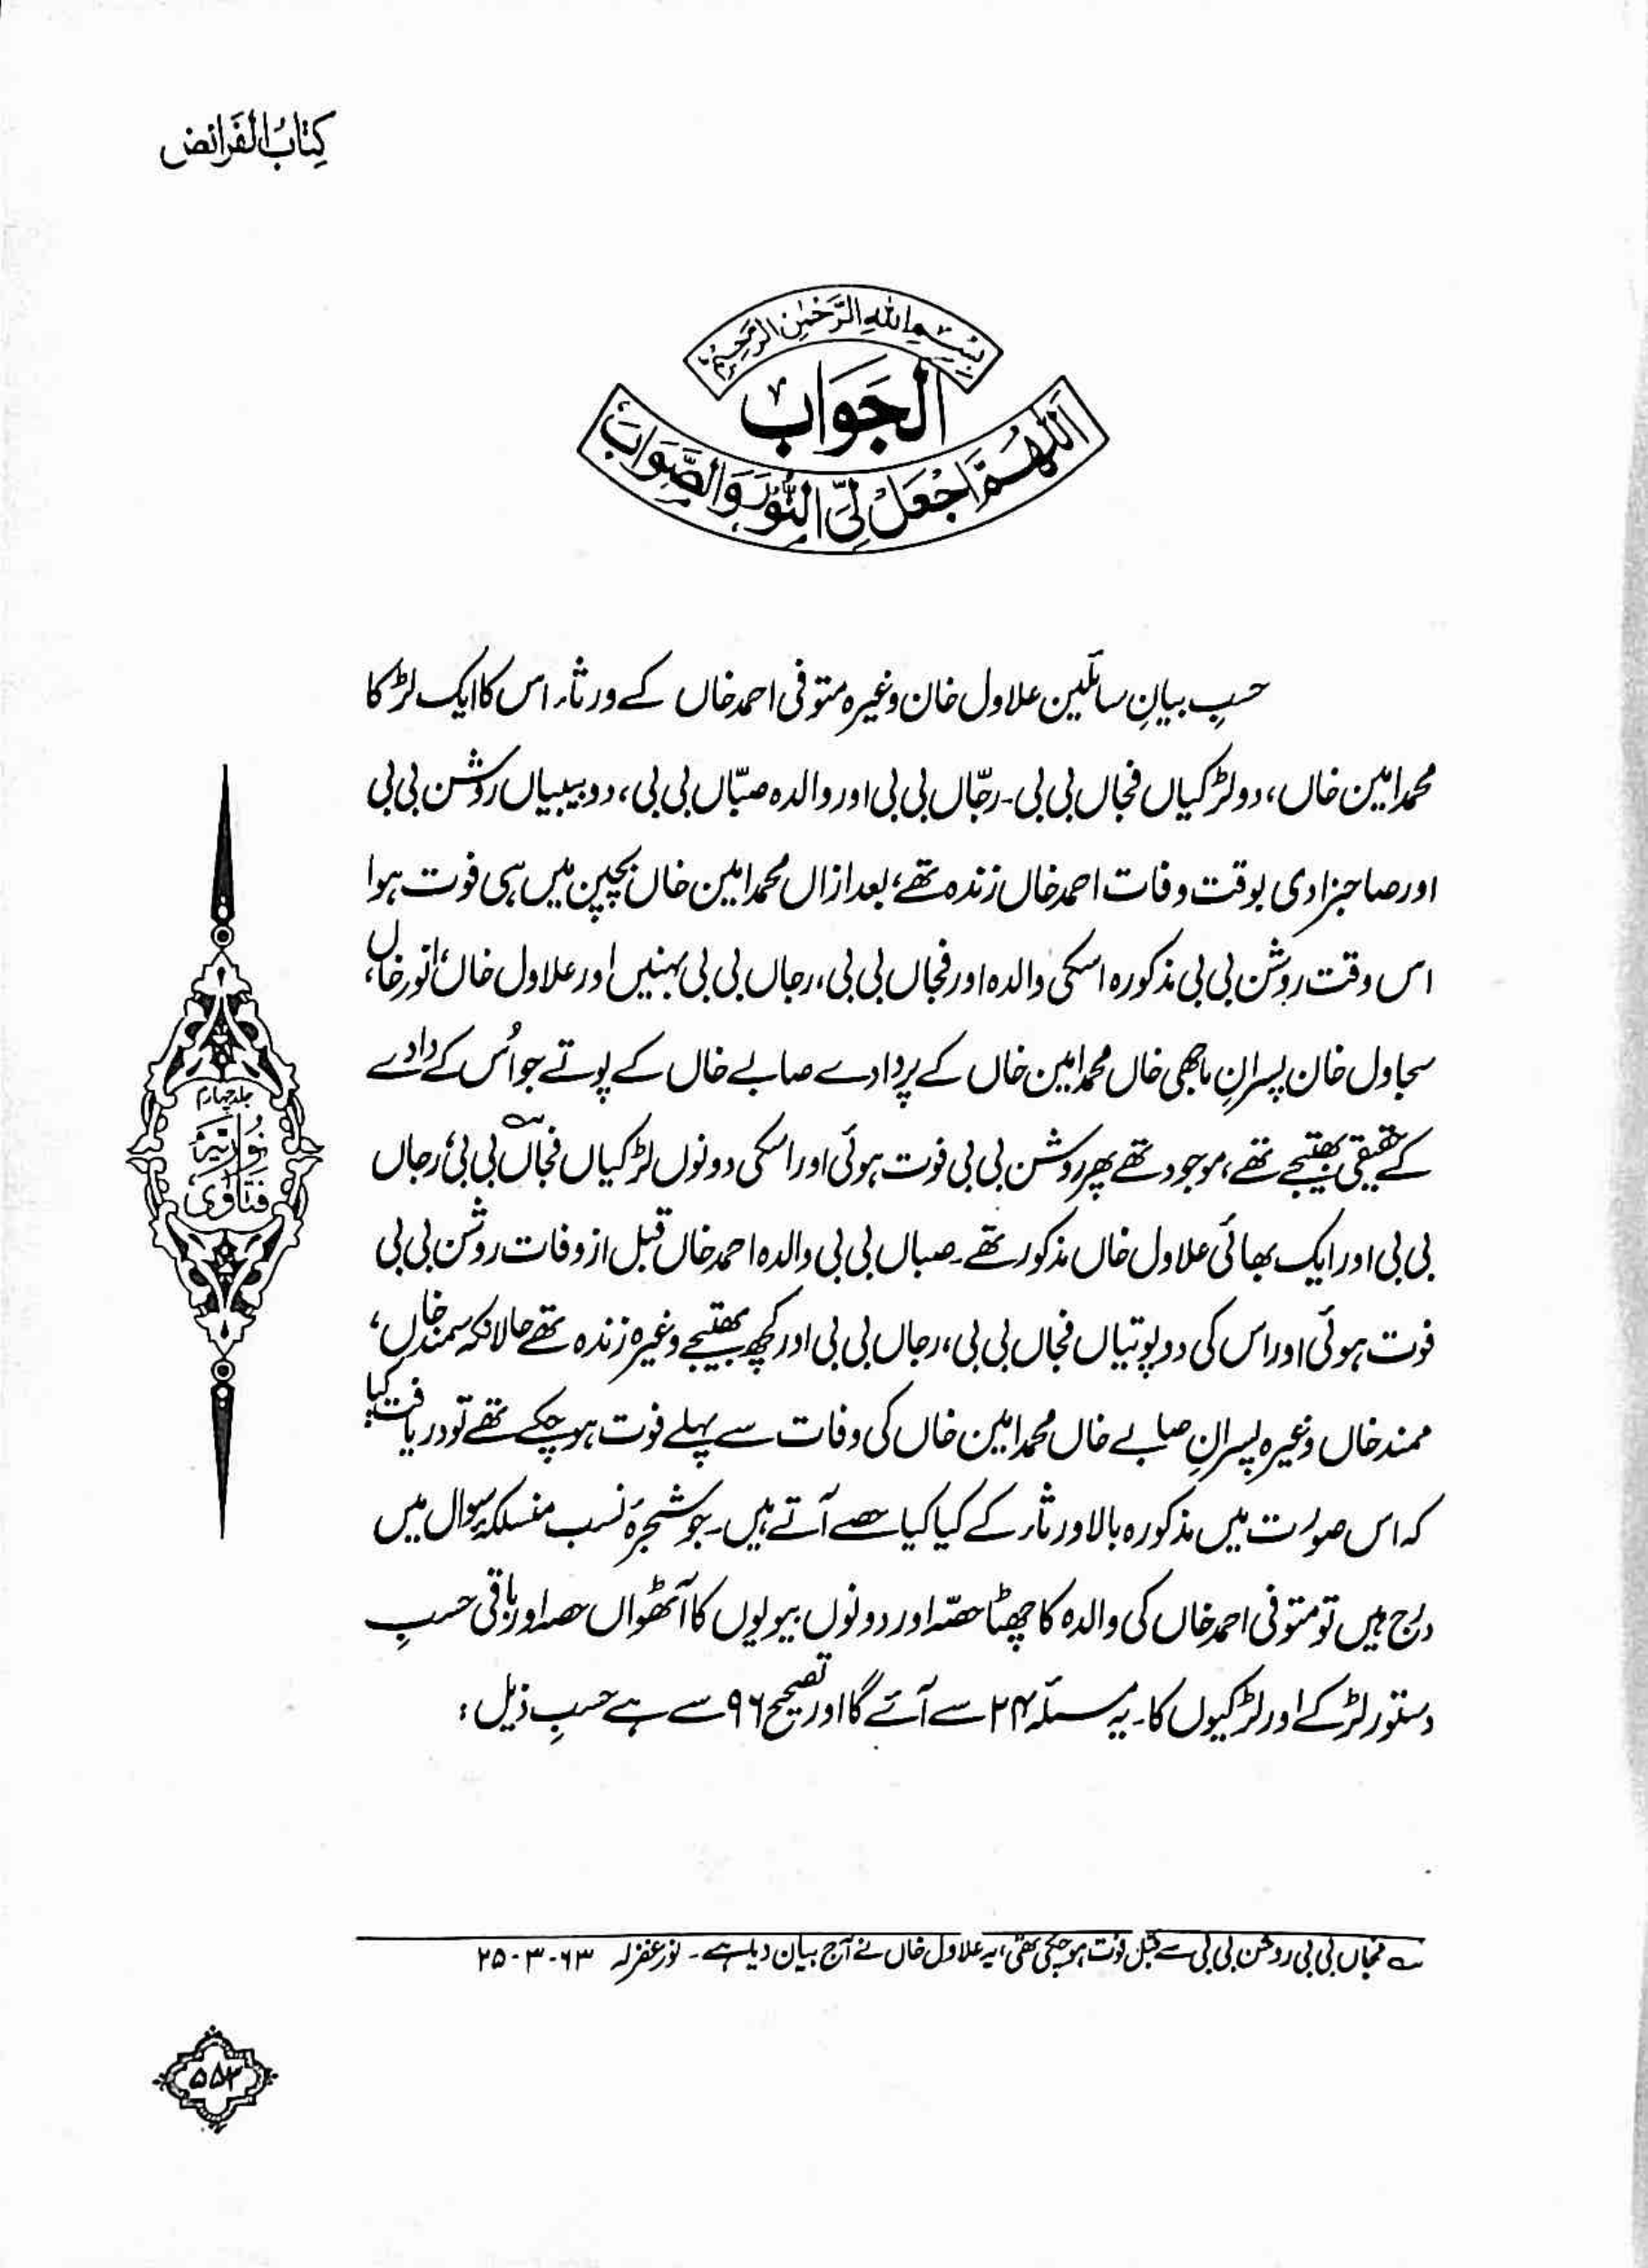 کِتَابُ الفَرَائض
بِسْمِ اللهِ الرَّحْمٰنِ الرَّحِيْمِ
الْجَوَابُ
اَللّٰهُمَّ اجْعَلْ لِّيَ النُّوْرَ وَالصَّوَابَ
حسبِ بیانِ سائلین علاول خان وغیرہ متوفی احمد خاں کے ورثاء اس کا ایک لڑکا
محمد امین خاں، دو لڑکیاں فجاں بی بی۔ رجّاں بی بی اور والدہ صبّاں بی بی، دو بیبیاں روشن بی بی
اور صاحبزادی بوقت وفات احمد خاں زندہ تھے، بعد ازاں محمد امین خاں بچپن میں ہی فوت ہوا
اس وقت روشن بی بی مذکورہ اسکی والدہ اور فجاں بی بی، رجاں بی بی بہنیں اور علاول خاں، انور خاں،
سجاول خان پسرانِ ماچھی خاں محمد امین خاں کے پردادے صابے خاں کے پوتے جو اُس کے دادے
کے حقیقی بھتیجے تھے، موجود تھے پھر روشن بی بی فوت ہوئی اور اسکی دونوں لڑکیاں فجاںؔ بی بی، رجاں
بی بی اور ایک بھائی علاول خاں مذکور تھے۔ صباں بی بی والدہ احمد خاں قبل از وفات روشن بی بی
فوت ہوئی اور اس کی دو پوتیاں فجاں بی بی، رجاں بی بی اور کچھ بھتیجے وغیرہ زندہ تھے حالانکہ سمند خاں،
ممند خاں وغیرہ پسرانِ صابے خاں محمد امین خاں کی وفات سے پہلے فوت ہو چکے تھے تو دریافت کیا
کہ اس صورت میں مذکورہ بالا ورثاء کے کیا کیا حصے آتے ہیں۔ جو شجرۂ نسب منسلکہ سوال میں
درج ہیں تو متوفی احمد خاں کی والدہ کا چھٹا حصّہ اور دونوں بیویوں کا آٹھواں حصہ اور باقی حسبِ
دستور لڑکے اور لڑکیوں کا۔ یہ مسئلہ ۲۴ سے آئے گا اور تصحیح ۹۶ سے ہے حسبِ ذیل :
جلد چہارم
نُورِیَّہ
فَتَاوٰی
؎ فجاں بی بی روشن بی بی سے قبل فوت ہو چکی تھی، یہ علاول خاں نے آج بیان دیا ہے۔ نور غفرلہ ۶۳-۳-۲۵
۵۵۳